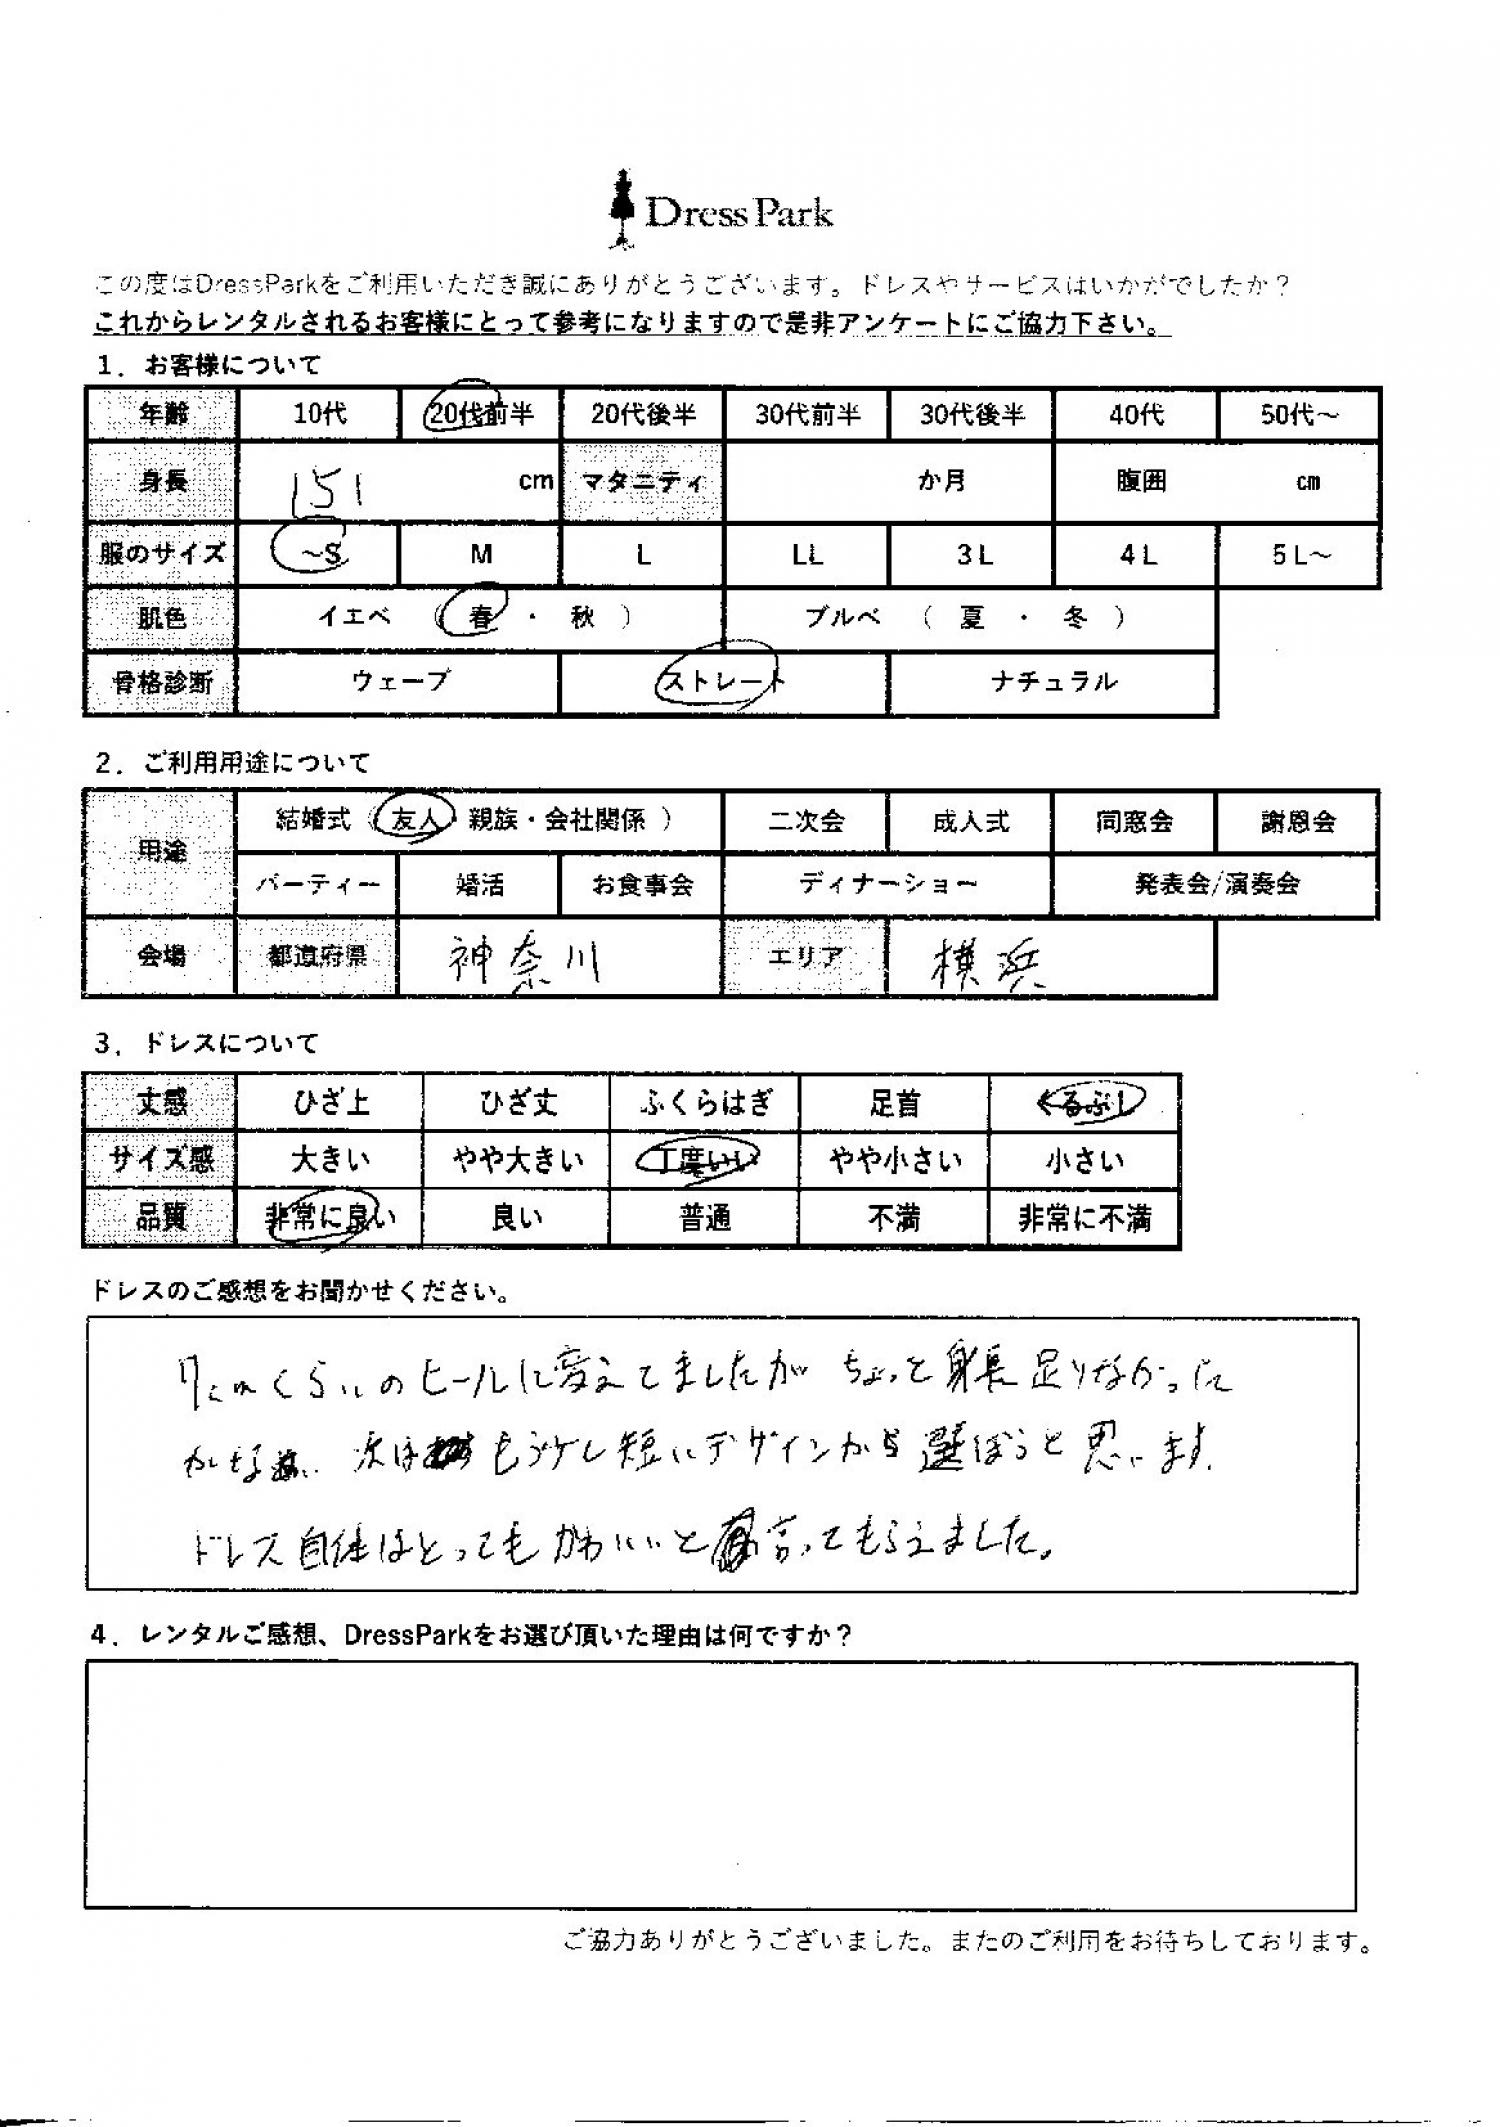 Dress Park
この度はDressParkをご利用いただき誠にありがとうございます。ドレスやサービスはいかがでしたか？
これからレンタルされるお客様にとって参考になりますので是非アンケートにご協力下さい。
1．お客様について
年齢 10代 20代前半 20代後半 30代前半 30代後半 40代 50代～
身長 151 cm マタニティ か月 腹囲 cm
服のサイズ ～S M L LL 3L 4L 5L～
肌色 イエベ （ 春 ・ 秋 ） ブルベ （ 夏 ・ 冬 ）
骨格診断 ウェーブ ストレート ナチュラル
2．ご利用用途について
用途 結婚式（友人・親族・会社関係） 二次会 成人式 同窓会 謝恩会
パーティー 婚活 お食事会 ディナーショー 発表会/演奏会
会場 都道府県 神奈川 エリア 横浜
3．ドレスについて
丈感 ひざ上 ひざ丈 ふくらはぎ 足首 くるぶし
サイズ感 大きい やや大きい 丁度いい やや小さい 小さい
品質 非常に良い 良い 普通 不満 非常に不満
ドレスのご感想をお聞かせください。
7cmくらいのヒールに変えてましたが ちょっと身長足りなかった
かな 次は もう少し短いデザインから選ぼうと思います。
ドレス自体はとってもかわいいと言ってもらえました。
4．レンタルご感想、DressParkをお選び頂いた理由は何ですか？
ご協力ありがとうございました。またのご利用をお待ちしております。